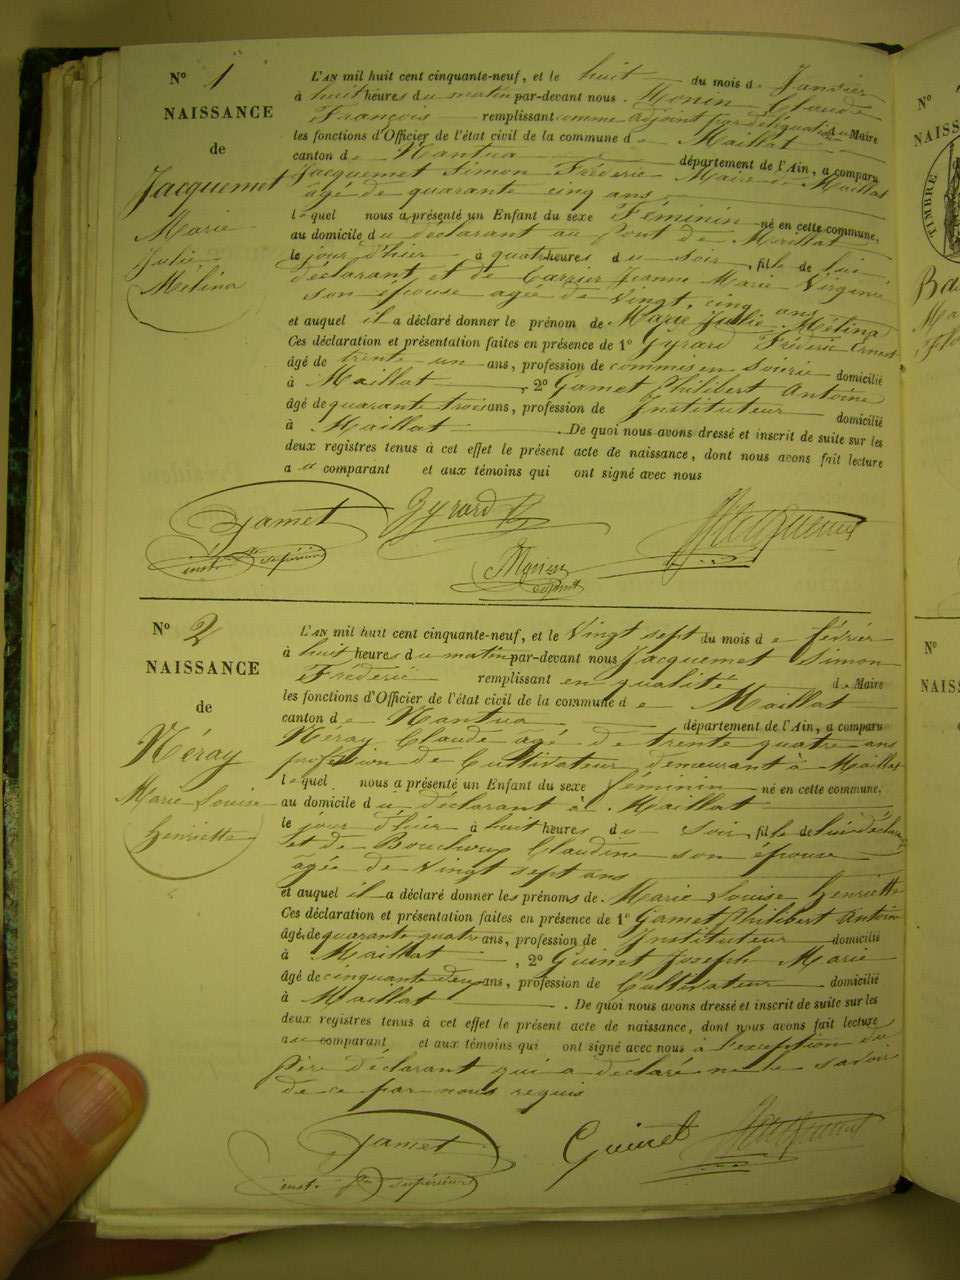 N° 1
NAISSANCE
de
Jacquemet
Marie
Julie
Mélina
L'AN mil huit cent cinquante-neuf, et le huit du mois de Janvier
à huit heures du matin par-devant nous Monin Claude
François remplissant comme adjoint par délégation du Maire
les fonctions d'Officier de l'état civil de la commune de Maillat
canton de Nantua département de l'Ain, a comparu
Jacquemet Simon Fréderic Maire de Maillat
âgé de quarante cinq ans
lequel nous a présenté un Enfant du sexe Féminin né en cette commune,
au domicile du déclarant au Pont de Maillat
le jour d'hier à quatr heures du soir, fille de lui
déclarant et de Carrier Jeanne Marie Virginie
son épouse agée de Vingt cinq ans
et auquel il a déclaré donner le prénom de Marie Julie Mélina
Ces déclaration et présentation faites en présence de 1° Gyrard Fréderic Ernest
âgé de trente un ans, profession de commis en Soirie domicilié
à Maillat, 2° Gamet Philibert Antoine
âgé de quarante trois ans, profession de Instituteur domicilié
à Maillat. De quoi nous avons dressé et inscrit de suite sur les
deux registres tenus à cet effet le présent acte de naissance, dont nous avons fait lecture
au comparant et aux témoins qui ont signé avec nous
Gamet Gyrard Jacquemet
inst. supérieur Monin
adjoint
N° 2
NAISSANCE
de
Néray
Marie Louise
Henriette
L'AN mil huit cent cinquante-neuf, et le Vingt sept du mois de février
à huit heures du matin par-devant nous Jacquemet Simon
Fréderic remplissant en qualité de Maire
les fonctions d'Officier de l'état civil de la commune de Maillat
canton de Nantua département de l'Ain, a comparu
Néray Claude agé de trente quatre ans
profession de Cultivateur demeurant à Maillat
lequel nous a présenté un Enfant du sexe féminin né en cette commune,
au domicile du déclarant à Maillat
le jour d'hier à huit heures du soir, fille de lui déclara
et de Claudine son épouse
agée de Vingt sept ans
et auquel il a déclaré donner les prénoms de Marie Louise Henriette
Ces déclaration et présentation faites en présence de 1° Gamet Philibert Antoin
âgé de quarante quatre ans, profession de Instituteur domicilié
à Maillat, 2° Guinet Joseph Marie
âgé de cinquante deux ans, profession de Cultivateur domicilié
à Maillat. De quoi nous avons dressé et inscrit de suite sur les
deux registres tenus à cet effet le présent acte de naissance, dont nous avons fait lecture
au comparant et aux témoins qui ont signé avec nous à l'exception du
père déclarant qui a déclaré ne le savoir
de ce par nous requis
Gamet Guinet Jacquemet
inst. supérieur
N°
NAISS
TIMBRE
Ba
N°
NAISS